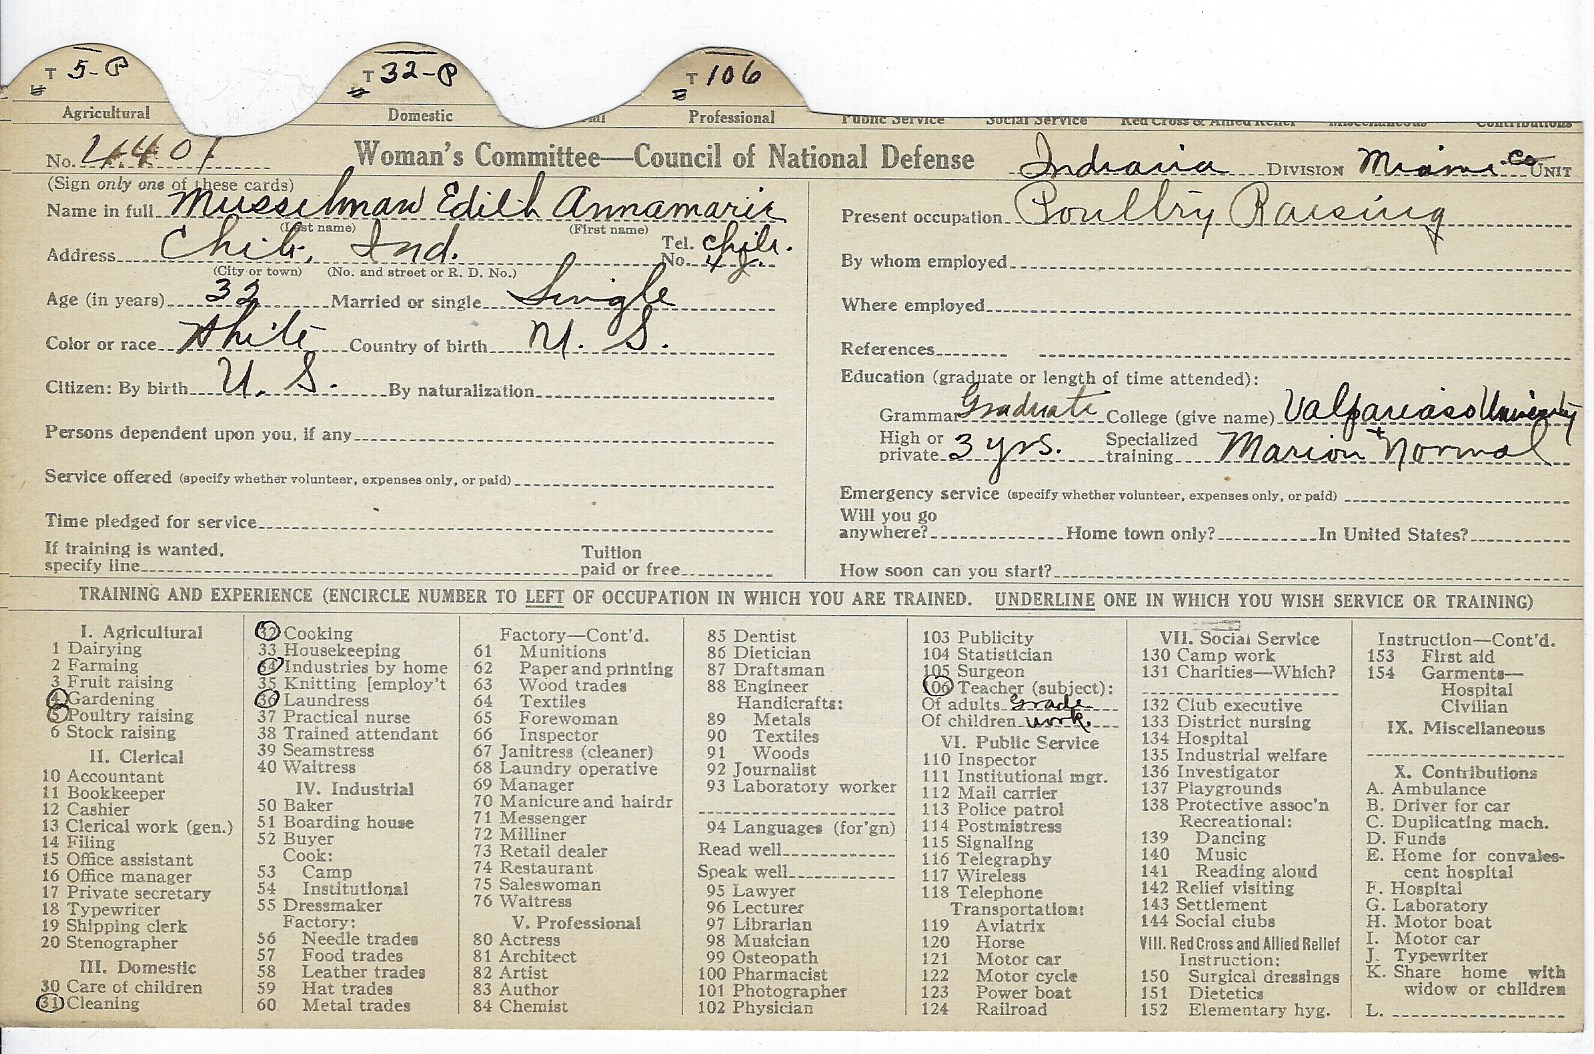 T 5-P T 32-P T 106
Agricultural Domestic Professional Public Service Social Service Red Cross & Allied Relief Miscellaneous Contributions
No. 4401 Woman's Committee—Council of National Defense Indiana DIVISION Miami Co UNIT
(Sign only one of these cards)
Name in full Musselman Edith Annamarie
(Last name) (First name)
Address Chili, Ind. Tel. No. Chili. 4 J.
(City or town) (No. and street or R. D. No.)
Age (in years) 32 Married or single Single
Color or race White Country of birth U. S.
Citizen: By birth U. S. By naturalization
Persons dependent upon you, if any
Service offered (specify whether volunteer, expenses only, or paid)
Time pledged for service
If training is wanted, Tuition
specify line paid or free
Present occupation Poultry Raising
By whom employed
Where employed
References
Education (graduate or length of time attended):
Grammar Graduate College (give name) Valparaiso University
High or private 3 yrs. Specialized training Marion + Normal
Emergency service (specify whether volunteer, expenses only, or paid)
Will you go
anywhere? Home town only? In United States?
How soon can you start?
TRAINING AND EXPERIENCE (ENCIRCLE NUMBER TO LEFT OF OCCUPATION IN WHICH YOU ARE TRAINED. UNDERLINE ONE IN WHICH YOU WISH SERVICE OR TRAINING)
I. Agricultural
1 Dairying
2 Farming
3 Fruit raising
4 Gardening
5 Poultry raising
6 Stock raising
II. Clerical
10 Accountant
11 Bookkeeper
12 Cashier
13 Clerical work (gen.)
14 Filing
15 Office assistant
16 Office manager
17 Private secretary
18 Typewriter
19 Shipping clerk
20 Stenographer
III. Domestic
30 Care of children
31 Cleaning
32 Cooking
33 Housekeeping
34 Industries by home
35 Knitting [employ't
36 Laundress
37 Practical nurse
38 Trained attendant
39 Seamstress
40 Waitress
IV. Industrial
50 Baker
51 Boarding house
52 Buyer
Cook:
53 Camp
54 Institutional
55 Dressmaker
Factory:
56 Needle trades
57 Food trades
58 Leather trades
59 Hat trades
60 Metal trades
Factory—Cont'd.
61 Munitions
62 Paper and printing
63 Wood trades
64 Textiles
65 Forewoman
66 Inspector
67 Janitress (cleaner)
68 Laundry operative
69 Manager
70 Manicure and hairdr
71 Messenger
72 Milliner
73 Retail dealer
74 Restaurant
75 Saleswoman
76 Waitress
V. Professional
80 Actress
81 Architect
82 Artist
83 Author
84 Chemist
85 Dentist
86 Dietician
87 Draftsman
88 Engineer
Handicrafts:
89 Metals
90 Textiles
91 Woods
92 Journalist
93 Laboratory worker
94 Languages (for'gn)
Read well
Speak well
95 Lawyer
96 Lecturer
97 Librarian
98 Musician
99 Osteopath
100 Pharmacist
101 Photographer
102 Physician
103 Publicity
104 Statistician
105 Surgeon
106 Teacher (subject):
Of adults Grade
Of children work.
VI. Public Service
110 Inspector
111 Institutional mgr.
112 Mail carrier
113 Police patrol
114 Postmistress
115 Signaling
116 Telegraphy
117 Wireless
118 Telephone
Transportation:
119 Aviatrix
120 Horse
121 Motor car
122 Motor cycle
123 Power boat
124 Railroad
VII. Social Service
130 Camp work
131 Charities—Which?
132 Club executive
133 District nursing
134 Hospital
135 Industrial welfare
136 Investigator
137 Playgrounds
138 Protective assoc'n
Recreational:
139 Dancing
140 Music
141 Reading aloud
142 Relief visiting
143 Settlement
144 Social clubs
VIII. Red Cross and Allied Relief
Instruction:
150 Surgical dressings
151 Dietetics
152 Elementary hyg.
Instruction—Cont'd.
153 First aid
154 Garments—
Hospital
Civilian
IX. Miscellaneous
X. Contributions
A. Ambulance
B. Driver for car
C. Duplicating mach.
D. Funds
E. Home for convales-
cent hospital
F. Hospital
G. Laboratory
H. Motor boat
I. Motor car
J. Typewriter
K. Share home with
widow or children
L.